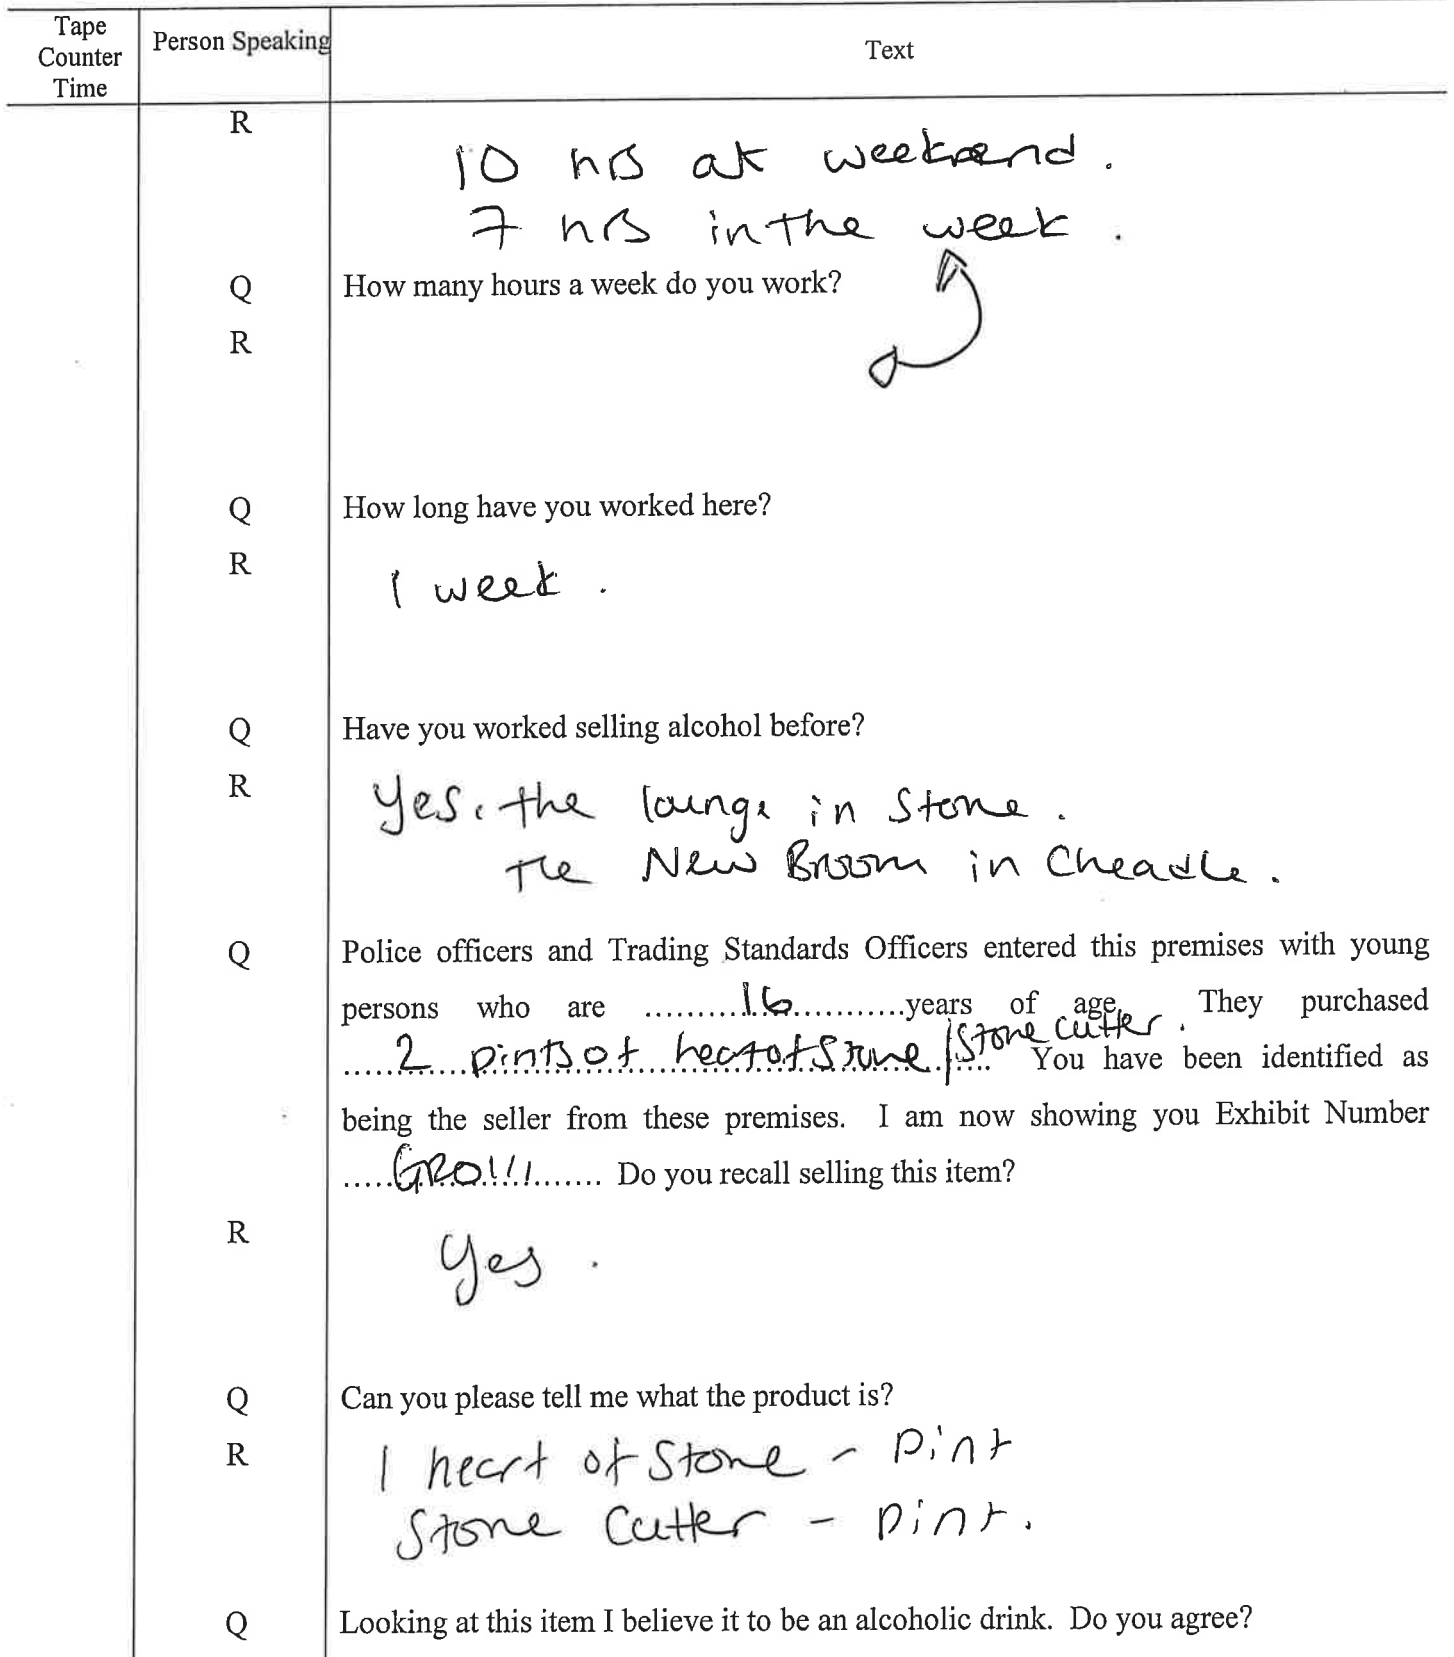 Tape
Counter
Time
Person Speaking
Text
R
10 hrs at weekend.
7 hrs in the week.
Q How many hours a week do you work?
R
Q How long have you worked here?
R
1 week.
Q Have you worked selling alcohol before?
R
Yes. the lounge in Stone.
The New Broom in Cheadle.
Q Police officers and Trading Standards Officers entered this premises with young
persons who are ..........16............years of age. They purchased
.....2 pints of heart of Stone / Stone Cutter. .... You have been identified as
being the seller from these premises. I am now showing you Exhibit Number
.....GRO111....... Do you recall selling this item?
R
Yes.
Q Can you please tell me what the product is?
R 1 heart of Stone - pint
Stone Cutter - pint.
Q Looking at this item I believe it to be an alcoholic drink. Do you agree?